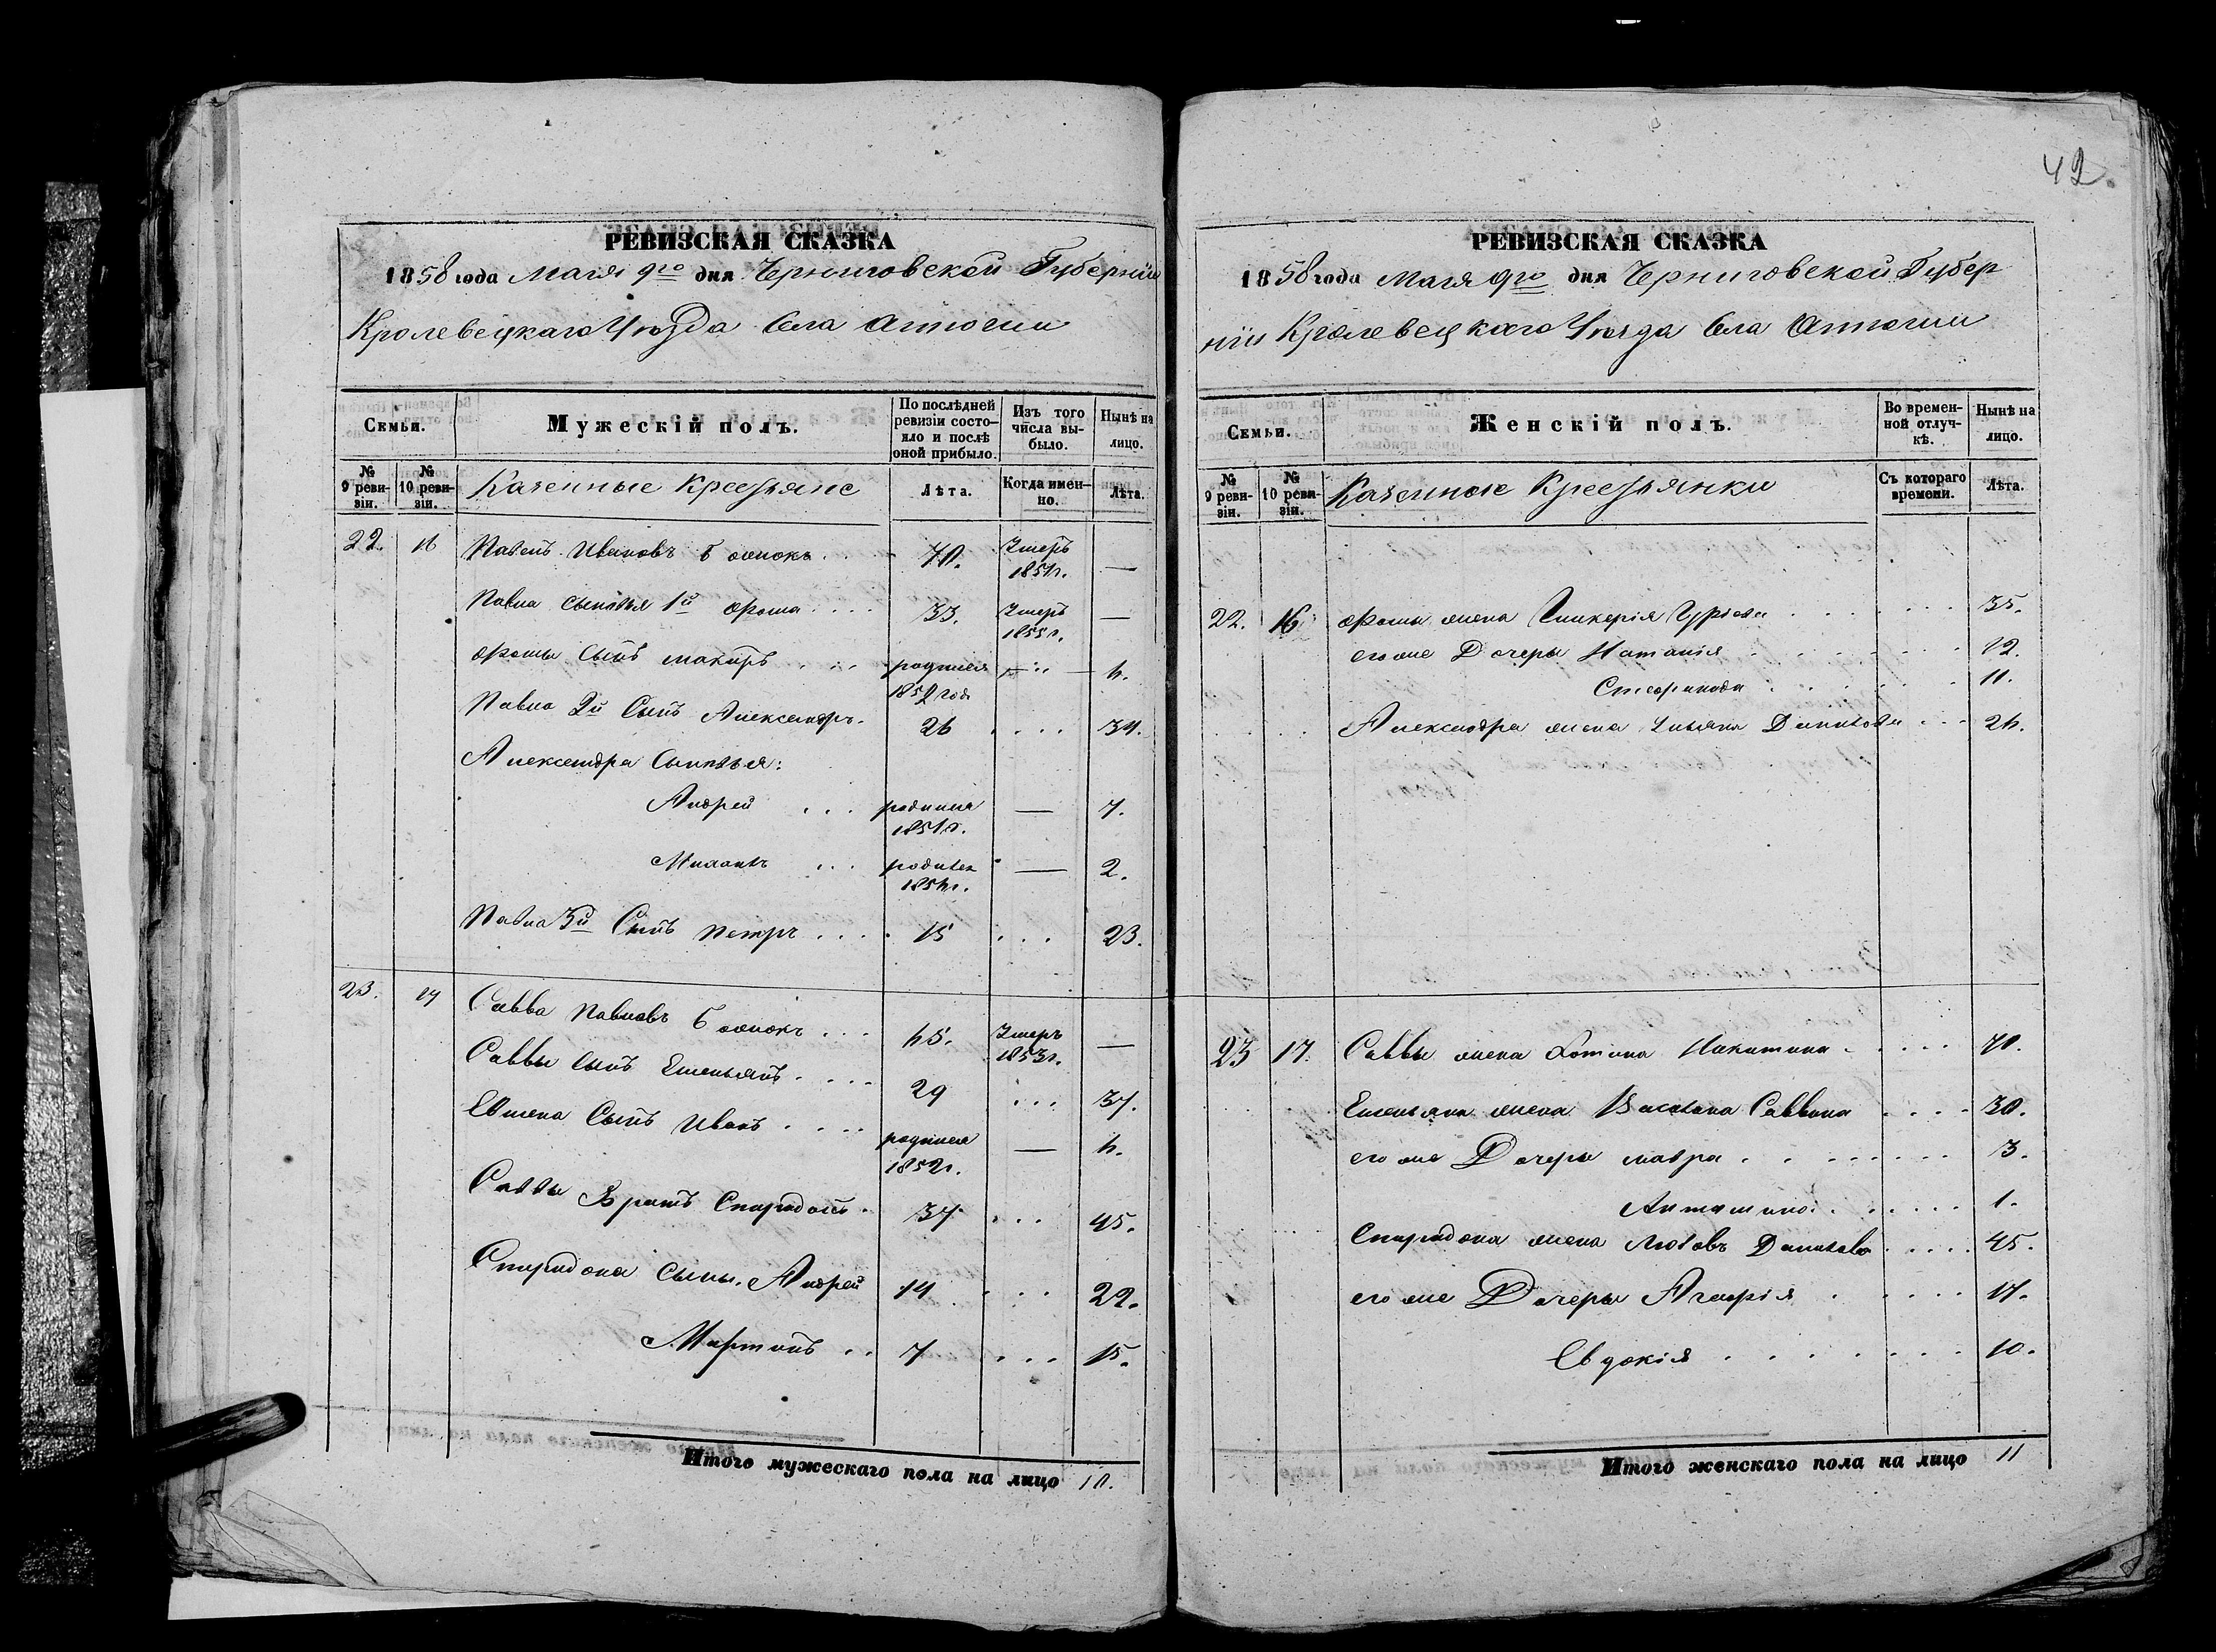 42.
РЕВИЗСКАЯ СКАЗКА
1858 года Маія 9го дня Черниговской Губерніи
Кролевецкаго Уѣзда Села
Семьи.
Мужескій полъ.
По послѣдней ревизіи состояло и послѣ оной прибыло.
Изъ того числа выбыло.
Нынѣ на лицо.
№ 9 ревизіи.
№ 10 ревизіи.
Казенные Крестьяне
Лѣта.
Когда именно.
Лѣта.
22. 16 Павелъ Ивановъ . . . 70. Умеръ —
Павла Сыновья 1й Фома . . . . 33. Умеръ 1855г. —
Фомы Сынъ Макаръ . . . родился — 6.
1852 года
Павла 2й Сынъ Александръ. 26 . . . . 34.
Александра Сыновья:
Андрей . . . родился 1851г. — 7.
. . . родился — 2.
Павла 3й Сынъ Петръ . . . . 15 . . . 23.
23. 17 Савва Павловъ . . . 65. Умеръ 1853г. —
Саввы Сынъ Емельянъ . . . . 29 . . . 37.
Сынъ Иванъ . . . . родился 1852г. — 6.
Саввы Братъ Спиридонъ . 37 . . . 45.
Спиридона Сыны. Андрей 14 . . . 22.
Мартинъ . . 7 . . . 15.
Итого мужескаго пола на лицо 10.
РЕВИЗСКАЯ СКАЗКА
1858 года Маія 9го дня Черниговской Губер
ніи Кролевецкаго Уѣзда Села
Семьи.
Женскій полъ.
Во временной отлучкѣ.
Нынѣ на лицо.
№ 9 ревизіи.
№ 10 ревизіи.
Казенные Крестьянки
Съ котораго времени.
Лѣта.
22. 16 Фомы жена Гликерія Гуріева . . . . . 35.
его же Дочери Наталія . . . . . 12.
Стефанида . . . . . 11.
Александра жена Ульяна Данилова . . . 26.
23 17. Саввы жена Фотина Никитина . . . . . 70.
Емельяна жена Саввина . . . . 30.
его же Дочери Мавра . . . . . . . 3.
. . . . . . 1.
Спиридона жена Любовъ Данилова . . . . 45.
его же Дочери Агафія . . . . . 17.
Евдокія . . . . . . . . 10.
Итого женскаго пола на лицо 11